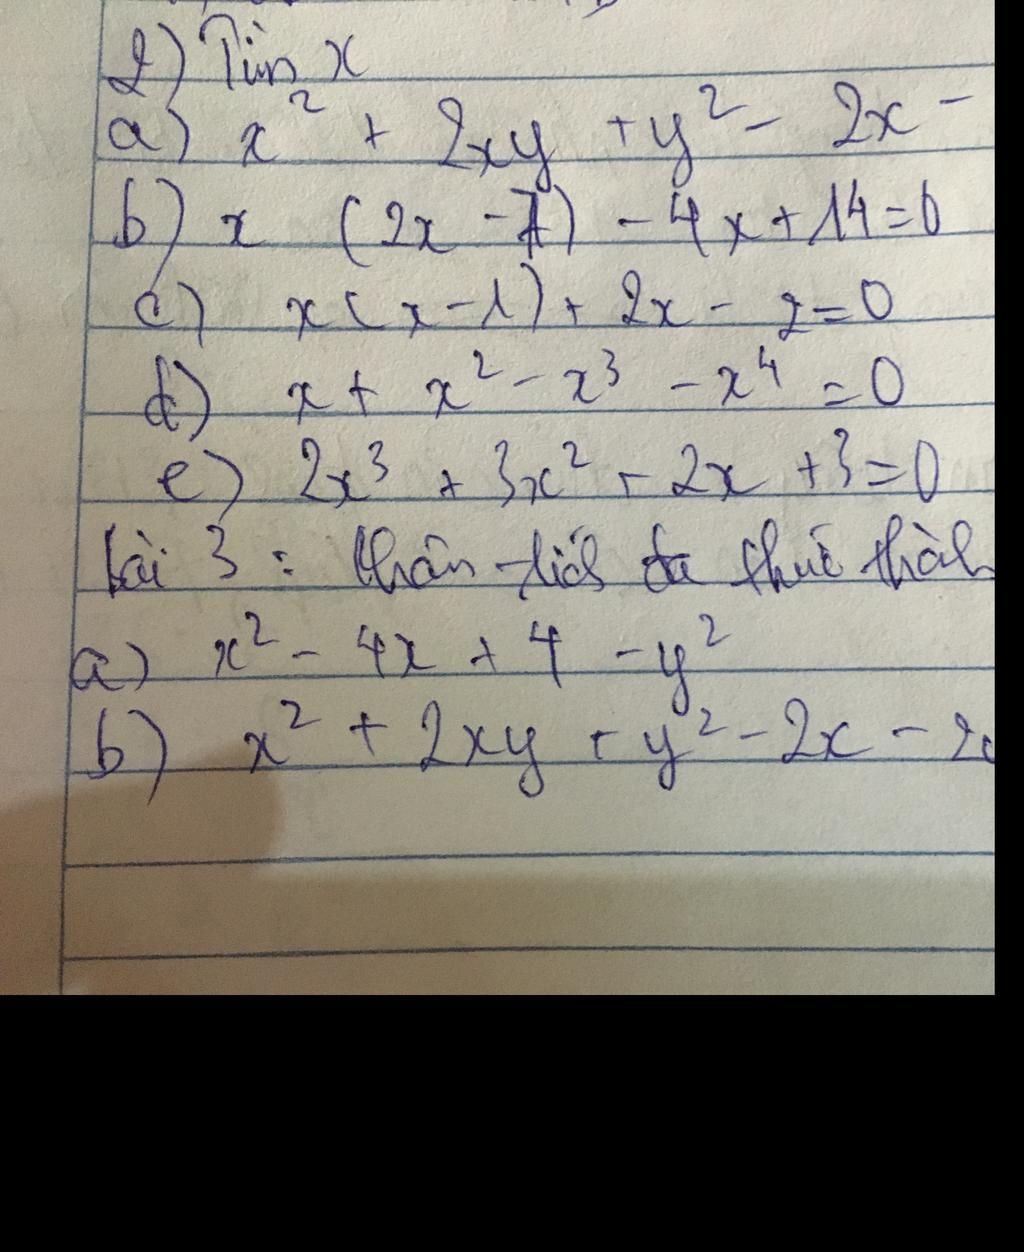 2) Tìm x
a) x² + 2xy + y² - 2x -
b) x (2x - 7) - 4x + 14 = 0
c) x(x - 1) + 2x - 2 = 0
d) x + x² - x³ - x⁴ = 0
e) 2x³ + 3x² + 2x + 3 = 0
bài 3 : phân tích đa thức thành
a) x² - 4x + 4 - y²
b) x² + 2xy + y² - 2x - 2